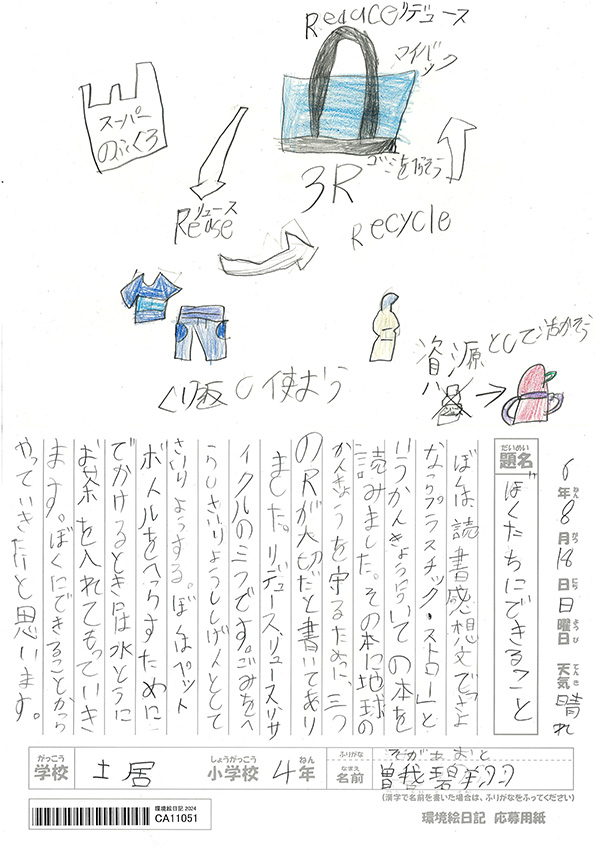 Reduceリデュース
マイバック
スーパー
のふくろ
3R
リユース
Reuse
Recycle
くり返し使おう
資源として活かそう
6年8月18日日曜日 天気晴れ
ねん がつ にち ようび てんき
だいめい
題名
ぼくたちにできること
ぼくは読書感想文で「さよ
ならプラスチック・ストロー」と
いうかんきょうについての本を
読みました。その本に地球の
かんきょうを守るために、三つ
のRが大切だと書いてあり
ました。リデュース、リユース、リサ
イクルの三つです。ごみをへ
らし、さいりようし、しげんとして
さいりようする。ぼくはペット
ボトルをへらすために
でかけるときには水とうに
お茶を入れてもっていき
ます。ぼくにできることから
やっていきたいと思います。
がっこう しょうがっこう ねん
学校 土居 小学校 4年
ふりがな そが あおと
なまえ
名前 曽我碧
(漢字で名前を書いた場合は、ふりがなをふってください)
環境絵日記 2024
CA11051
環境絵日記 応募用紙